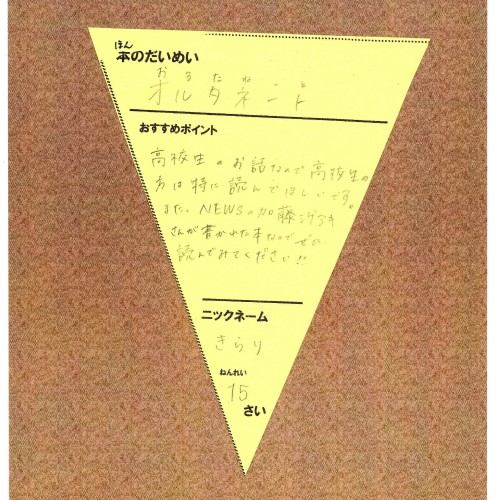 ほん
本のだいめい
おるたね ど
オルタネート
おすすめポイント
高校生のお話なので高校生の
方は特に読んでほしいです。
また、NEWSの加藤シゲアキ
さんが書かれた本なのでぜひ
読んでみてください!!
ニックネーム
きらり
ねんれい
15
さい